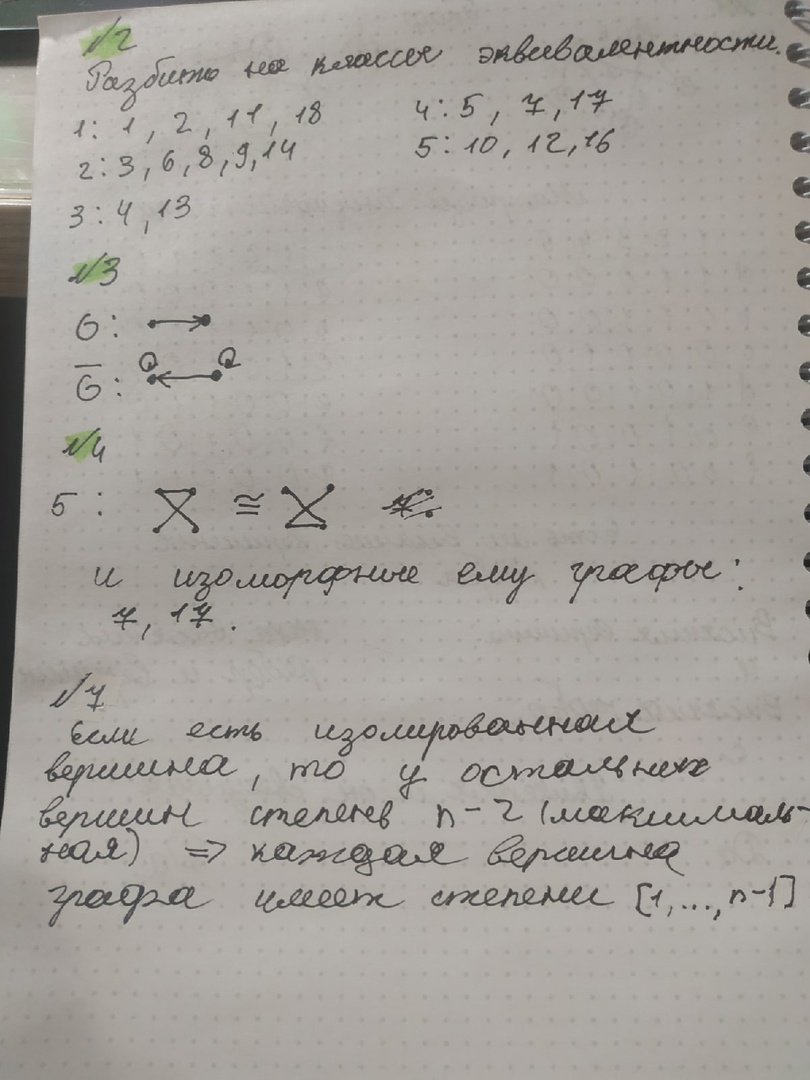 №2
Разбито на классы эквивалентности.
1: 1, 2, 11, 18
4: 5, 7, 17
2: 3, 6, 8, 9, 14
5: 10, 12, 16
3: 4, 13
№3
G:
G̅:
№4
5: ≅
и изоморфные ему графы:
7, 17.
№7
Если есть изолированная
вершина, то у остальных
вершин степень n-2 (максималь-
ная) => каждая вершина
графа имеет степени [1,...,n-1]